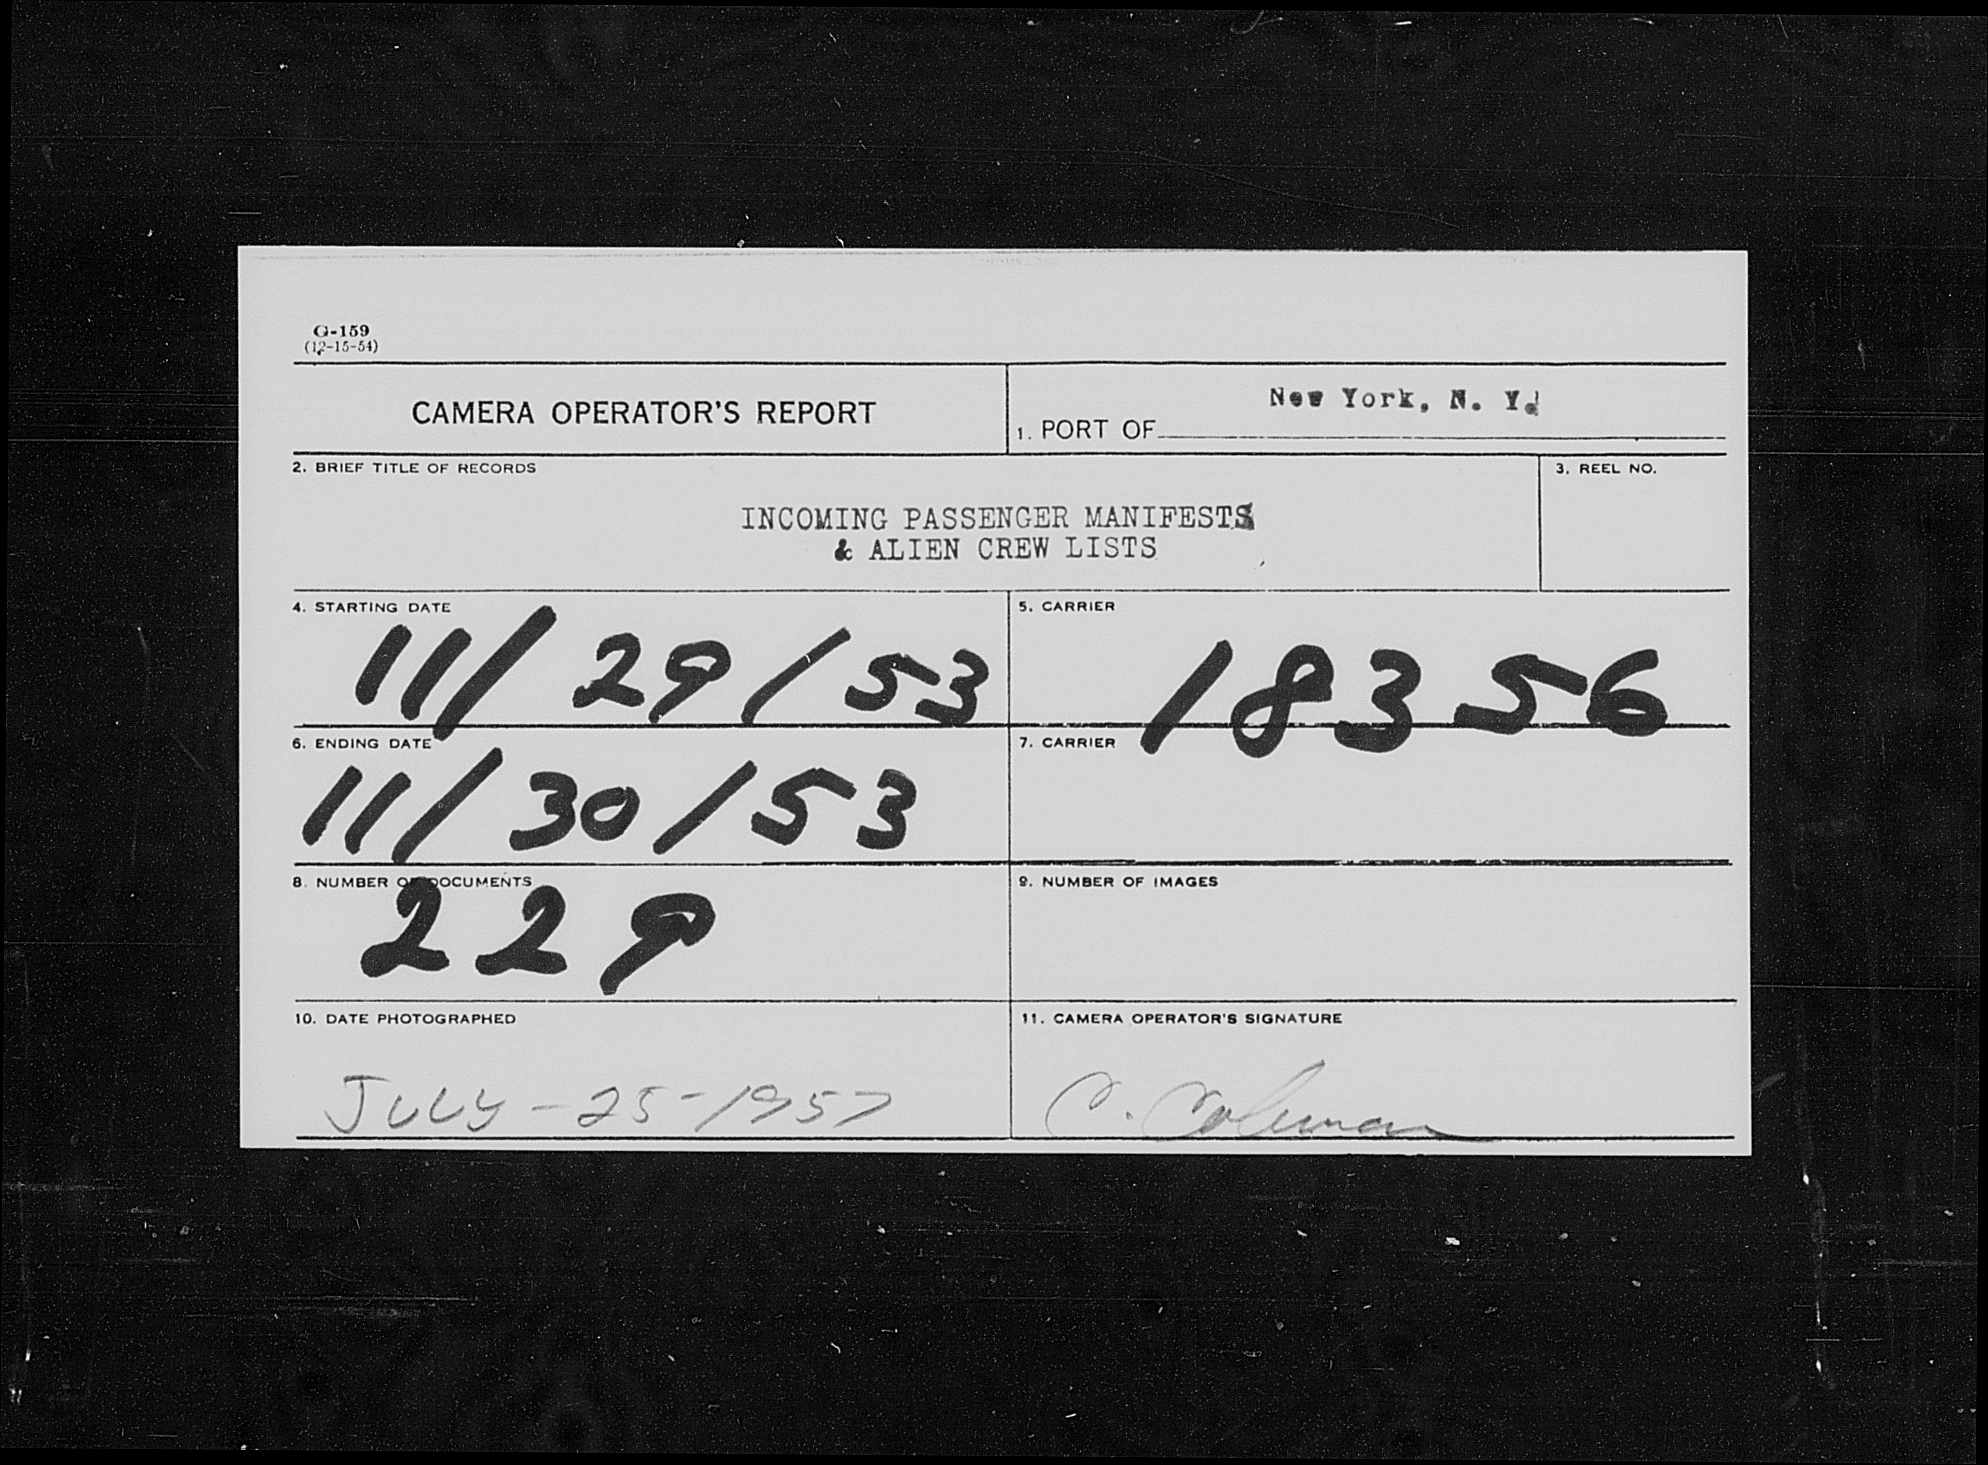 G-159
(12-15-54)
CAMERA OPERATOR'S REPORT
1. PORT OF New York, N. Y.
2. BRIEF TITLE OF RECORDS
3. REEL NO.
INCOMING PASSENGER MANIFESTS
& ALIEN CREW LISTS
4. STARTING DATE
11/29/53
5. CARRIER
18356
6. ENDING DATE
11/30/53
7. CARRIER
8. NUMBER OF DOCUMENTS
229
9. NUMBER OF IMAGES
10. DATE PHOTOGRAPHED
JULY-25-1957
11. CAMERA OPERATOR'S SIGNATURE
C. Coleman